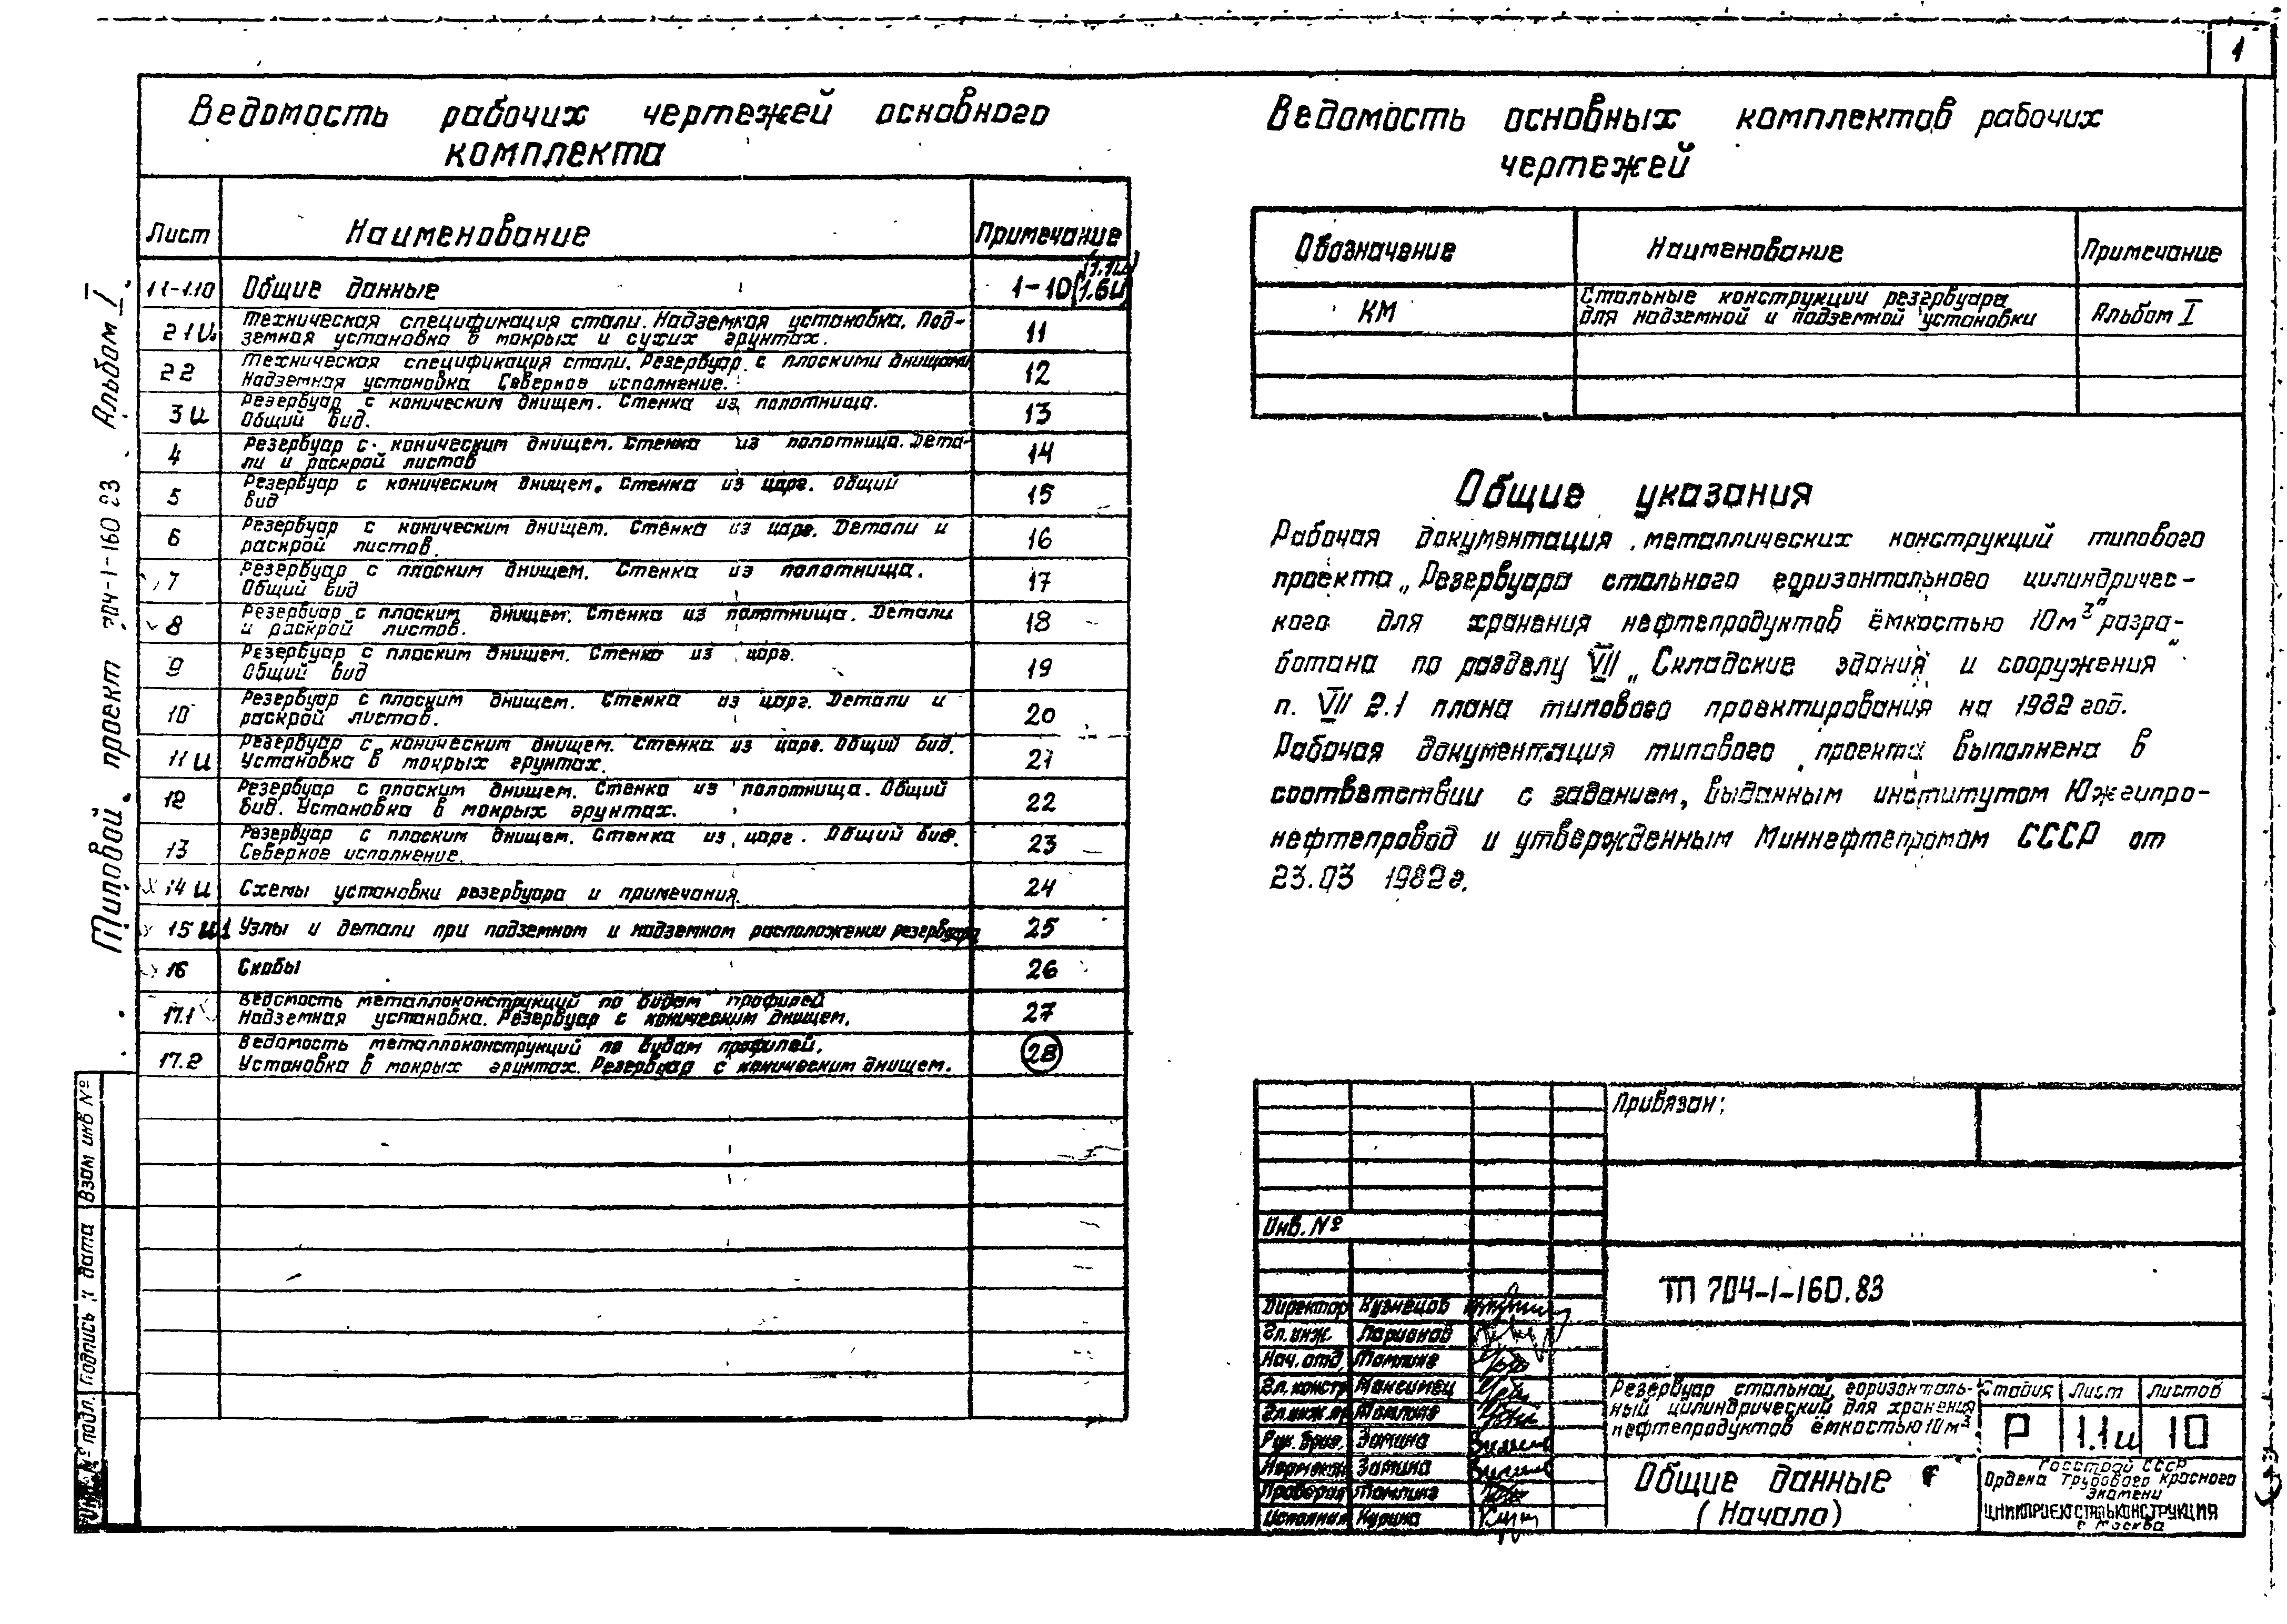 1
Ведомость рабочих чертежей основного
комплекта
Лист Наименование Примечание
1.1-1.10 Общие данные 1-10 (1.1и) (1.6и)
2.1и Техническая спецификация стали. Надземная установка. Под-
земная установка в мокрых и сухих грунтах. 11
2.2 Техническая спецификация стали. Резервуар с плоскими днищами
Надземная установка Северное исполнение. 12
3и Резервуар с коническим днищем. Стенка из полотнища.
Общий вид. 13
4 Резервуар с коническим днищем. Стенка из полотнища. Дета-
ли и раскрой листов 14
5 Резервуар с коническим днищем. Стенка из царг. Общий
вид 15
6 Резервуар с коническим днищем. Стенка из царг. Детали и
раскрой листов. 16
7 Резервуар с плоским днищем. Стенка из полотнища.
Общий вид 17
8 Резервуар с плоским днищем. Стенка из полотнища. Детали
и раскрой листов. 18
9 Резервуар с плоским днищем. Стенка из царг.
Общий вид 19
10 Резервуар с плоским днищем. Стенка из царг. Детали и
раскрой листов. 20
11и Резервуар с коническим днищем. Стенка из царг. Общий вид.
Установка в мокрых грунтах. 21
12 Резервуар с плоским днищем. Стенка из полотнища. Общий
вид. Установка в мокрых грунтах. 22
13 Резервуар с плоским днищем. Стенка из царг. Общий вид.
Северное исполнение. 23
14и Схемы установки резервуара и примечания. 24
15и1 Узлы и детали при подземном и надземном расположении резервуара 25
16 Скобы 26
17.1 Ведомость металлоконструкций по видам профилей
Надземная установка. Резервуар с коническим днищем. 27
17.2 Ведомость металлоконструкций по видам профилей.
Установка в мокрых грунтах. Резервуар с коническим днищем. 28
Типовой проект 704-1-160 83 Альбом I
Взам инв №
Подпись и дата
Инв. № подл.
Ведомость основных комплектов рабочих
чертежей
Обозначение Наименование Примечание
КМ Стальные конструкции резервуара
для надземной и подземной установки Альбом I
Общие указания
Рабочая документация металлических конструкций типового
проекта „Резервуара стального горизонтального цилиндричес-
кого для хранения нефтепродуктов ёмкостью 10м³" разра-
ботана по разделу VII „Складские здания и сооружения"
п. VII 2.1 плана типового проектирования на 1982 год.
Рабочая документация типового проекта выполнена в
соответствии с заданием, выданным институтом Южгипро-
нефтепровод и утвержденным Миннефтепромом СССР от
23.03 1982г.
Привязан:
Инв. №
ТП 704-1-160.83
Директор Кузнецов
Гл. инж. Ларионов
Нач. отд. Томлине
Гл. констр Максимец
Гл. инж. пр Томлине
Рук. бриг. Зотина
Нормокон Зотина
Проверил Томлине
Исполнил Курина
Резервуар стальной горизонталь-
ный цилиндрический для хранения
нефтепродуктов ёмкостью 10м³
Стадия Лист Листов
Р 1.1и 10
Общие данные
(Начало)
Госстрой СССР
Ордена Трудового Красного
Знамени
ЦНИИПРОЕКТСТАЛЬКОНСТРУКЦИЯ
г Москва